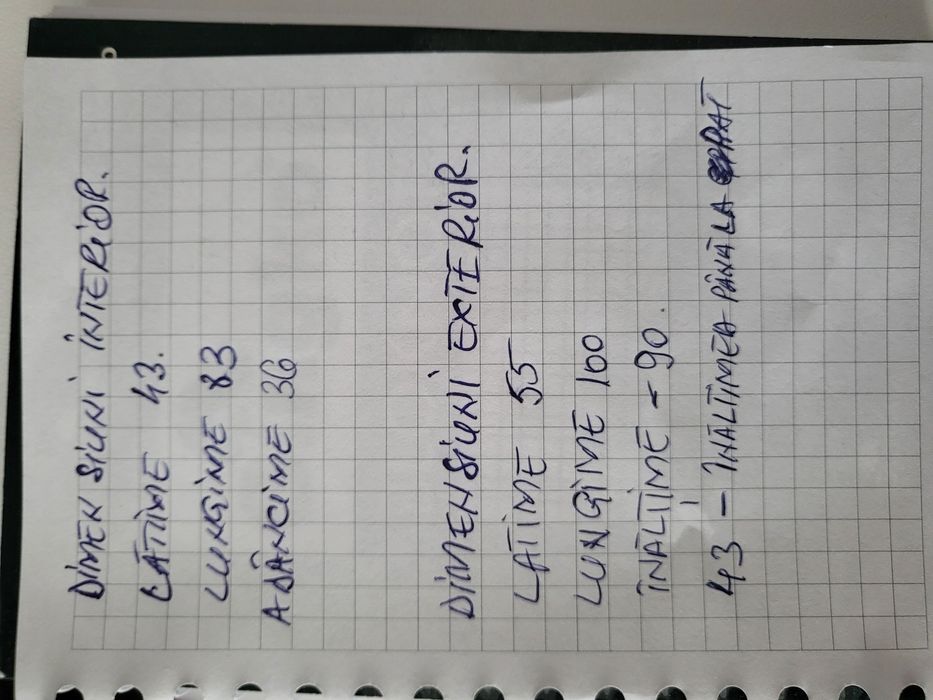 DIMENSIUNI ÎNTERIOR.
LĂTIME 43.
LUNGIME 83
ADÂNCIME 36
DIMENSIUNI EXTERIOR.
LĂTIME 55
LUNGIME 100
ÎNĂLTIME - 90.
43 - ÎNĂLTIMEA PÂNĂ LA